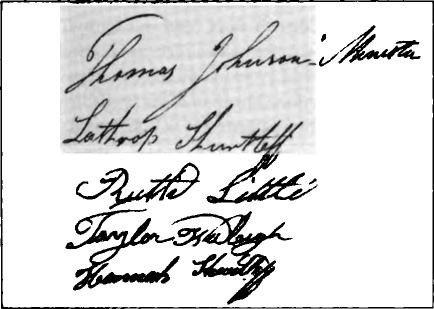 Thomas Johnson - Minister
Lathrop Shurtleff
Ruth Little
Taylor
Hannah Shurtleff